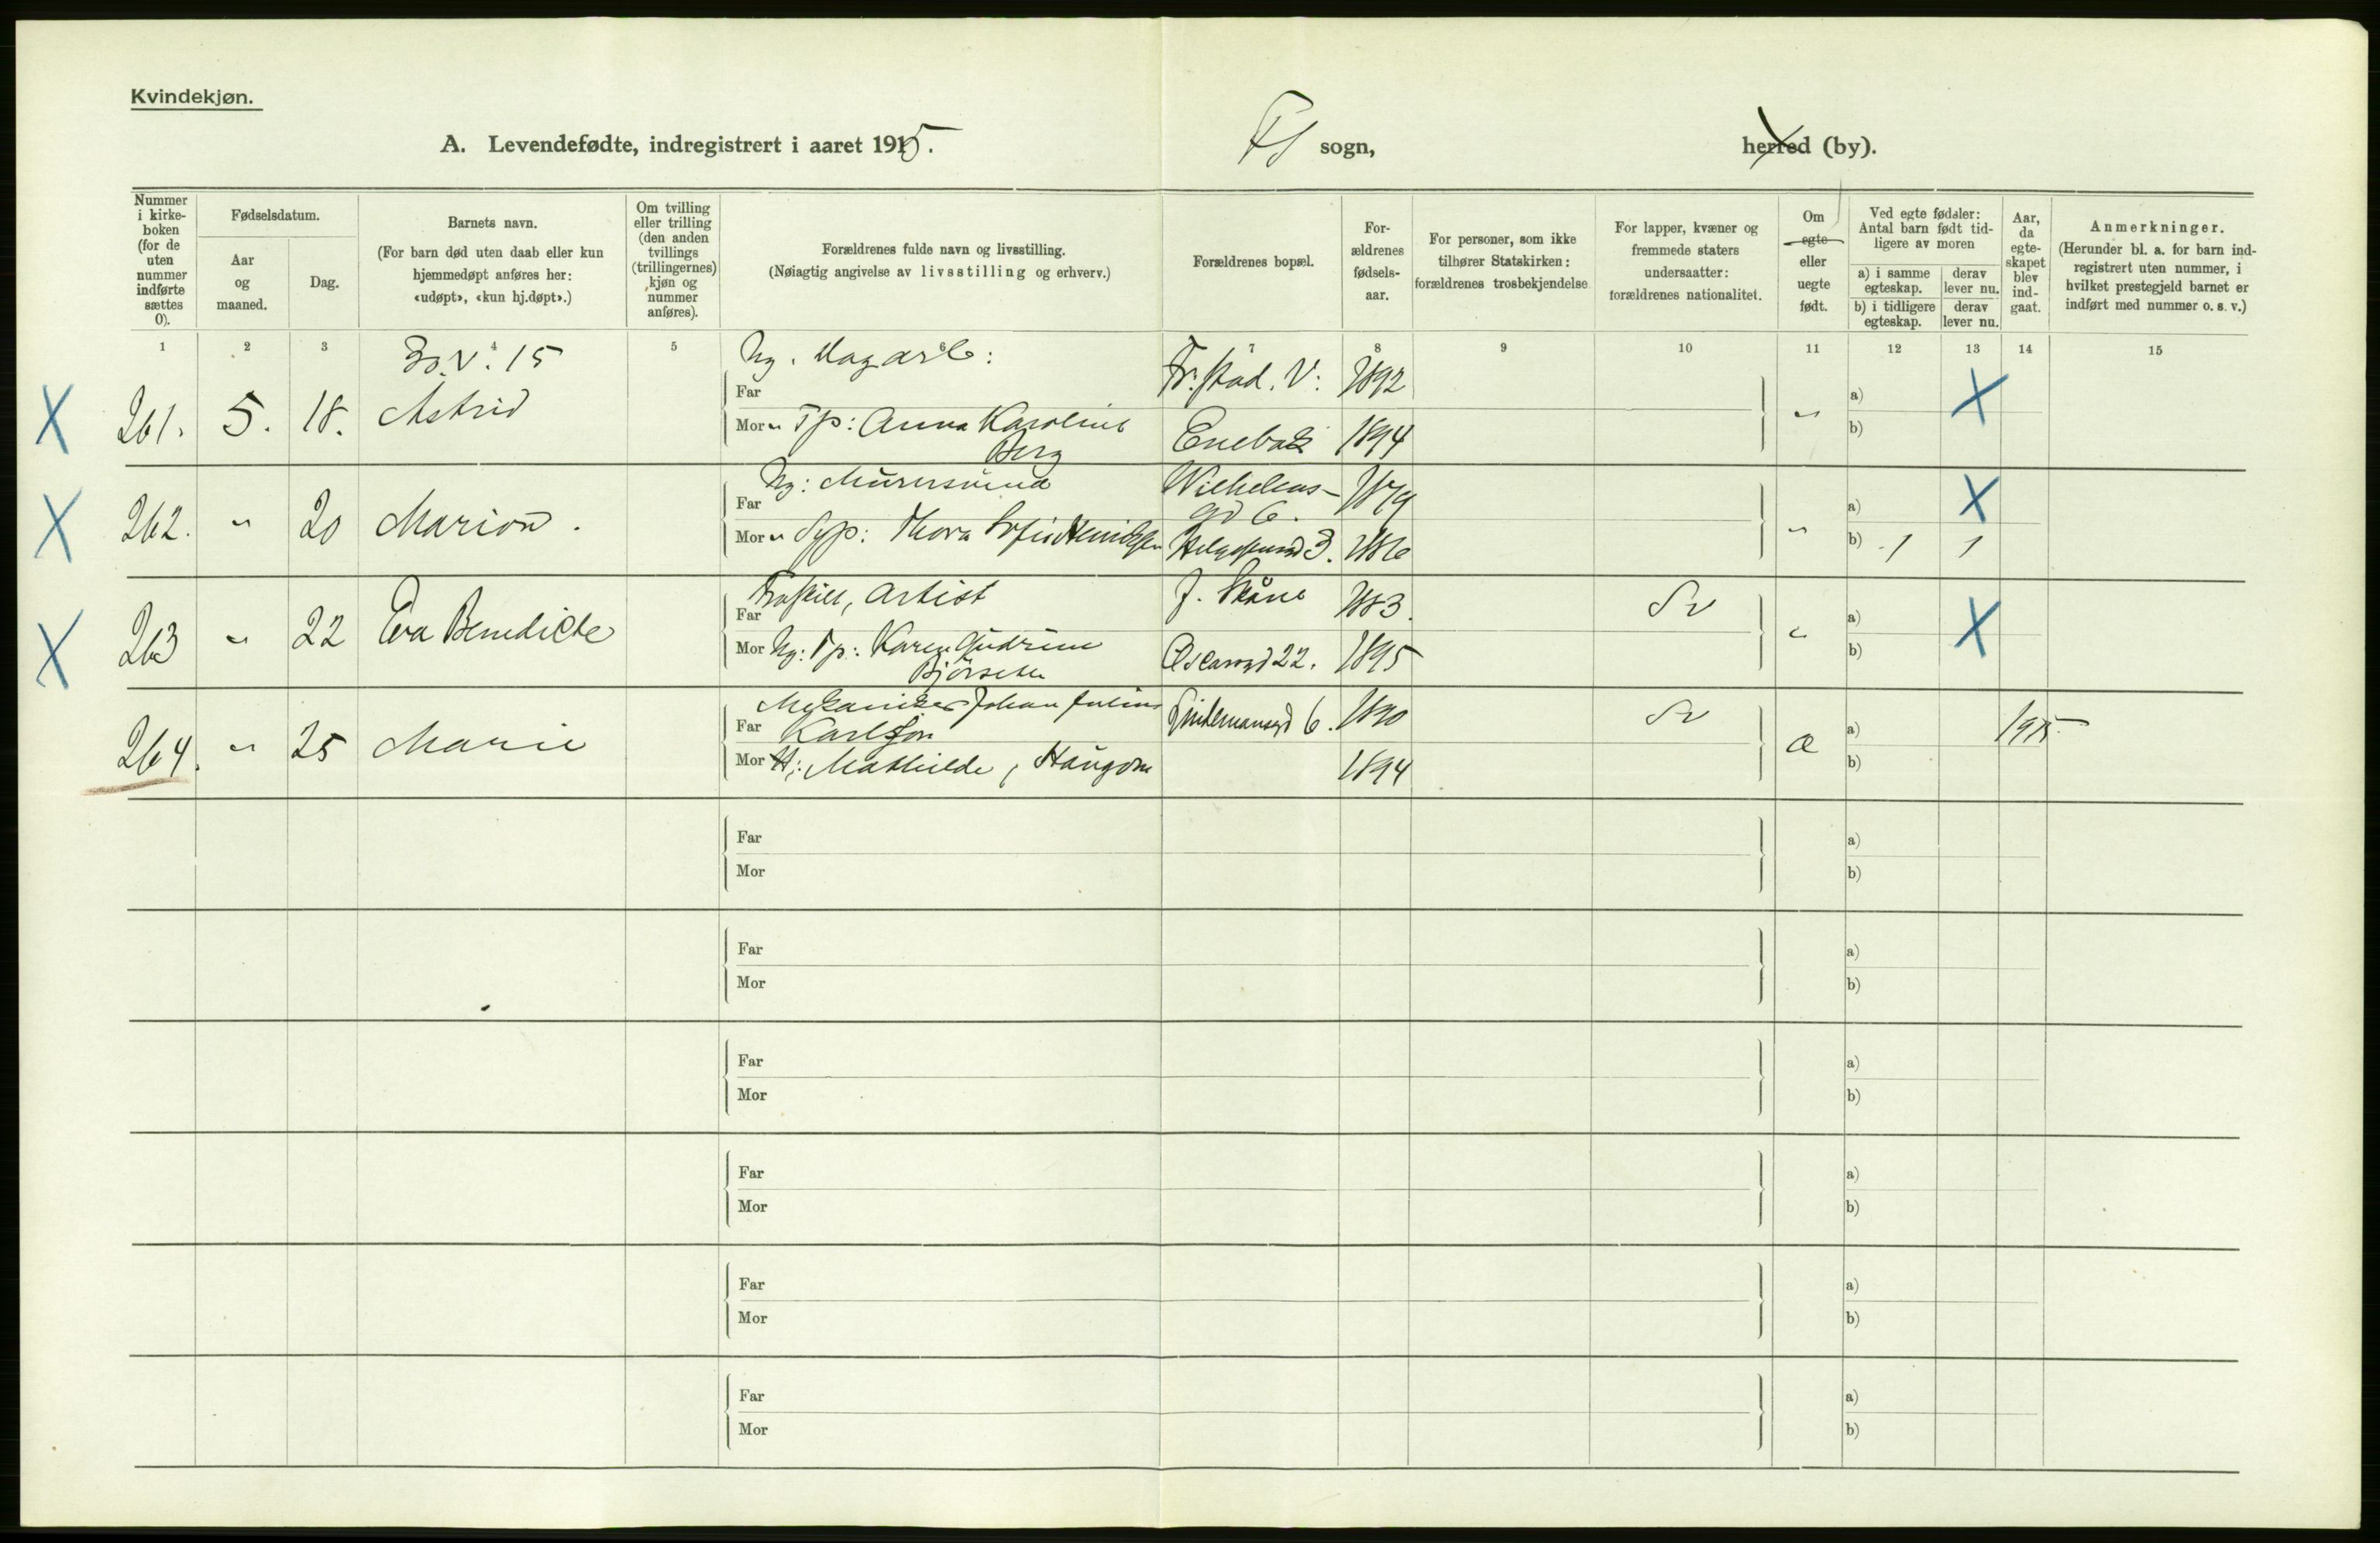 Kvindekjøn.
A. Levendefødte, indregistrert i aaret 1915.
Fs sogn,
herred (by).
Nummer i kirke-boken (for de uten nummer indførte sættes 0).
Fødselsdatum.
Aar og maaned.
Dag.
Barnets navn.
(For barn død uten daab eller kun hjemmedøpt anføres her: «udøpt», «kun hj.døpt».)
Om tvilling eller trilling (den anden tvillings (trillingernes) kjøn og nummer anføres).
Forældrenes fulde navn og livsstilling.
(Nøiagtig angivelse av livsstilling og erhverv.)
Forældrenes bopæl.
For-ældrenes fødsels-aar.
For personer, som ikke tilhører Statskirken: forældrenes trosbekjendelse
For lapper, kvæner og fremmede staters undersaatter: forældrenes nationalitet.
Om egte eller uegte født.
Ved egte fødsler: Antal barn født tid-ligere av moren
a) i samme egteskap.
derav lever nu.
b) i tidligere egteskap.
derav lever nu.
Aar, da egte-skapet blev ind-gaat.
Anmerkninger.
(Herunder bl. a. for barn ind-registrert uten nummer, i hvilket prestegjeld barnet er indført med nummer o. s. v.)
1 2 3 4 5 6 7 8 9 10 11 12 13 14 15
30.V.15
X 261. 5. 18. Astrid
Far Ug. Magarb: Fr.stad. V: 1892
Mor " Tp: Anna Karoline Berg Enebak 1894
" a) X
b)
X 262. " 20 Marion.
Far Ug: Murersvend Wilhelms-gd 6. 1879
Mor " Syp: Thora Sofie 3. 1886
" a) X
b) 1 1
X 263 " 22 Eva Benedicte
Far Fraskilt, Artist J. Skåne 1883. Sv
Mor Ug: Tp: Karen Gudrun Björseter Oscarsgd 22. 1895
" a) X
b)
264. " 25 Marie
Far Mekaniker Johan Julius Karlsson Lindemansgd 6. 1890 Sv
Mor H: Mathilde, Haugom 1894
Æ a) 1915
b)
Far a)
Mor b)
Far a)
Mor b)
Far a)
Mor b)
Far a)
Mor b)
Far a)
Mor b)
Far a)
Mor b)